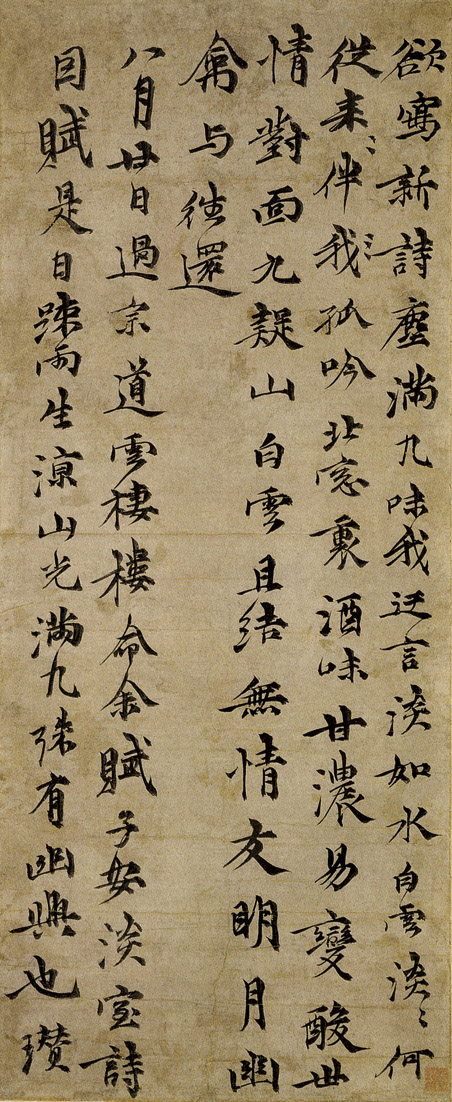 欲寫新詩塵滿几味我迂言淡如水白雲淡〻何
從来〻伴我〻孤吟北窓裏酒味甘濃易變酸世
情對面九疑山白雲且結無情友明月幽
禽与往還
八月廿日過宗道雲棲樓命余賦子安淡室詩
因賦是日踈雨生涼山光滿几殊有幽興也瓚